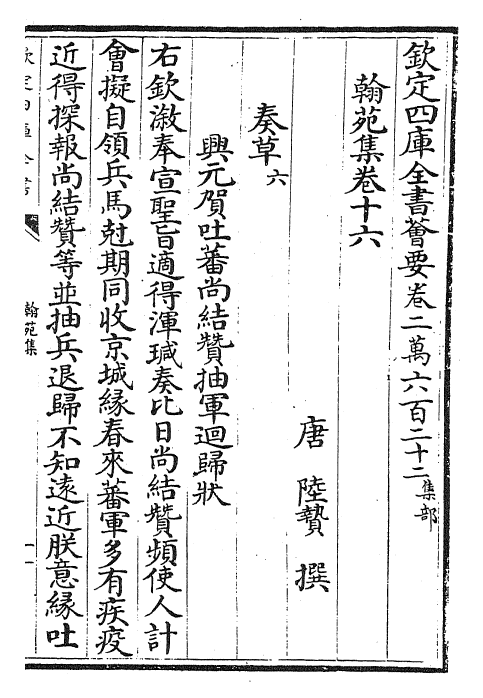 欽定四庫全書薈要卷二萬六百二十二集部
翰苑集卷十六
唐 陸贄 撰
奏草六
興元賀吐蕃尚結贊抽軍迴歸狀
右欽漵奉宣聖旨適得渾瑊奏比日尚結贊頻使人計
會擬自領兵馬尅期同收京城緣春來蕃軍多有疾疫
近得探報尚結贊等並抽兵退歸不知遠近朕意緣吐
翰苑集